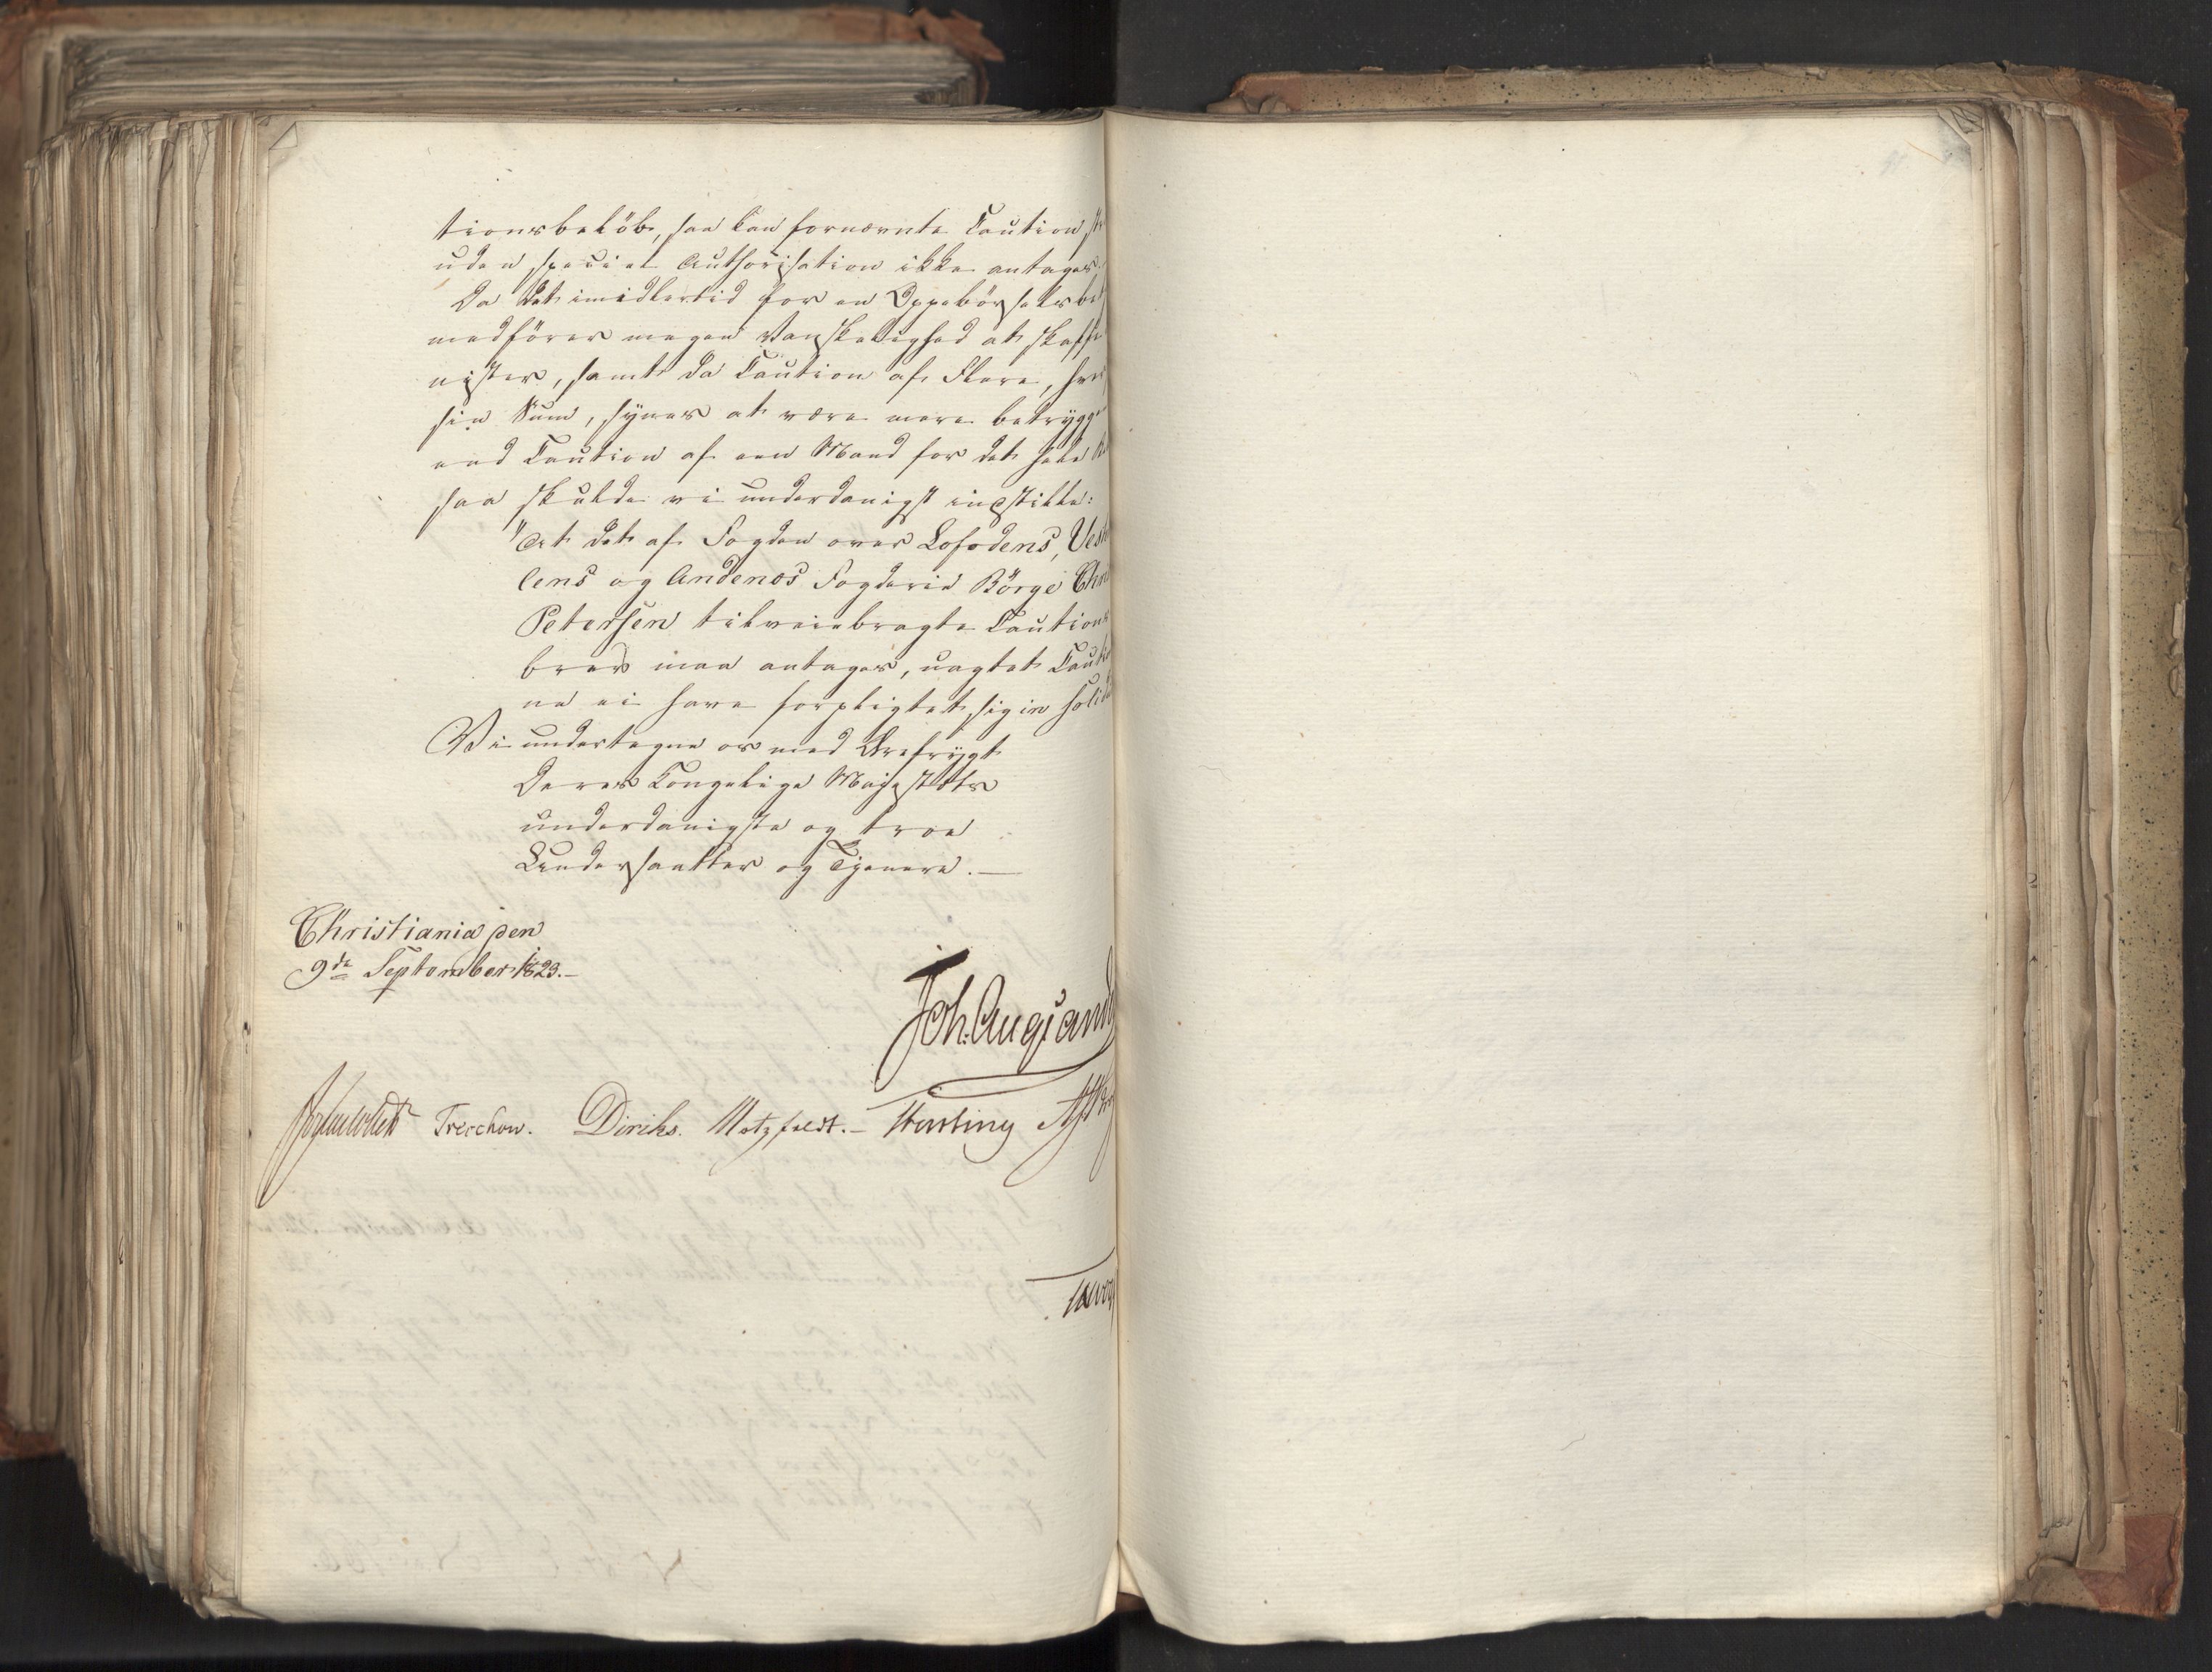 tionsbeløb, saa kan fornævnte Caution
uden special Authorisation ikke antages.
Da det imidlertid for en Oppebørselsbet
medfører megen Vanskelighed at skaffe
nister, samt da Caution af Flere, hver
sin Sum, synes at være mere betrygge
end Caution af een Mand for det hele
saa skulde vi underdanigst indstille:
"At det af Fogden over Lofodens, Veste
lens og Andenæs Fogderie Børge Chri
Petersen tilveiebragte Cautions
brev maa antages, uagtet Cautio
ne ei have forpligtet sig in solid
Vi undertegne os med Ærefrygt
Deres Kongelige Majestæts
underdanigste og troe
Undersaatter og Tjenere.—
Christiania den
9de September 1823.—
Joh. Aug. Sand
Treschow. Diriks. Motzfeldt.— Hersleb